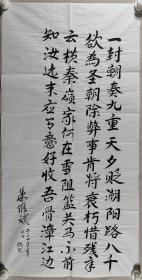 一封朝奏九重天夕贬湖阳路八千
欲为圣朝除弊事肯将衰朽惜残年
云横秦岭家何在雪阻蓝关马不前
知汝远来应有意好收吾骨漳江边